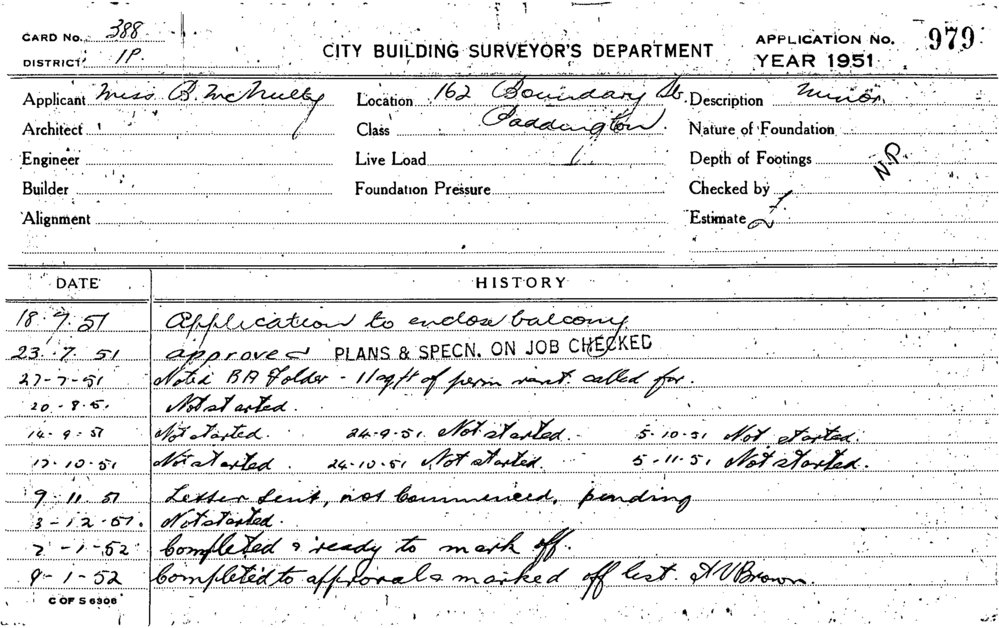 CARD No. 388
DISTRICT 1P.
CITY BUILDING SURVEYOR'S DEPARTMENT
APPLICATION No. 979
YEAR 1951
Applicant Miss B. McNulty Location 162 Boundary St. Description Minor
Architect Class Paddington. Nature of Foundation
Engineer Live Load Depth of Footings N.P.
Builder Foundation Pressure Checked by
Alignment Estimate
DATE HISTORY
18.7.51 Application to enclose balcony
23.7.51 approved PLANS & SPECN. ON JOB CHECKED
27-7-51 Noted BA Folder - 11 sq ft of perm vent. called for.
20-8-5. Not started.
14-9-51 Not started. 24-9-51 Not started. 5-10-51 Not started.
17-10-51 Not started. 24-10-51 Not started. 5-11-51 Not started.
9.11.51 Letter sent, not commenced, pending
3-12-51. Not started.
2-1-52 Completed & ready to mark off.
9-1-52 Completed to approval & marked off list. Brown.
C OF S 6306